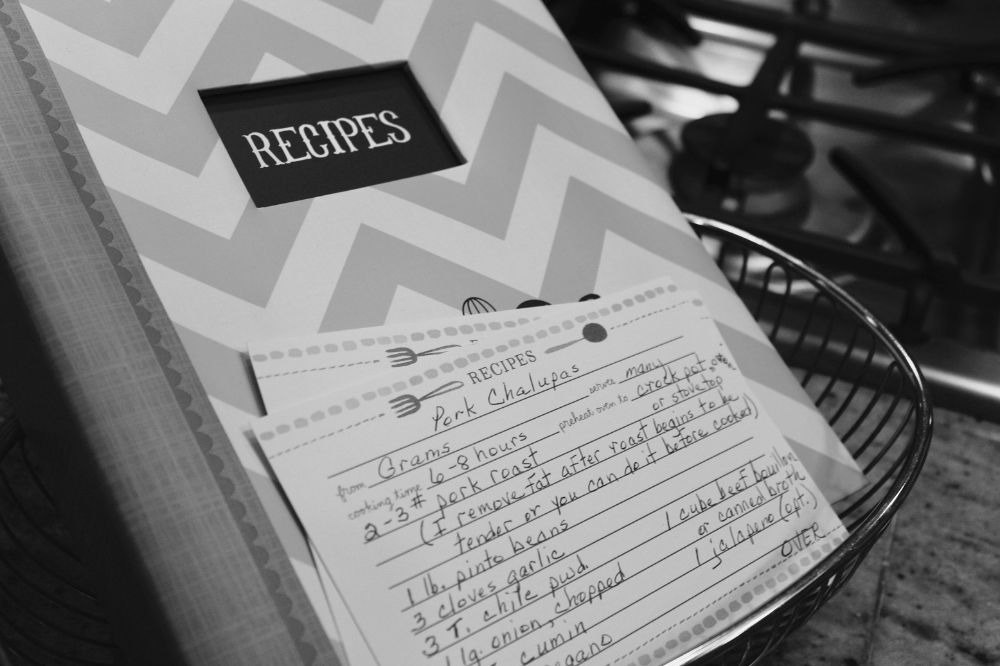 RECIPES
RECIPES
Pork Chalupas
from Grams serves many
cooking time 6-8 hours preheat oven to crock pot,
2-3# pork roast or stovetop
(I remove fat after roast begins to be
tender or you can do it before cooked)
1 lb. pinto beans
3 cloves garlic 1 cube beef bouillon
3 T. chile pwd. or canned broth
1 lg. onion, chopped 1 jalapeno (opt.)
cumin
OVER